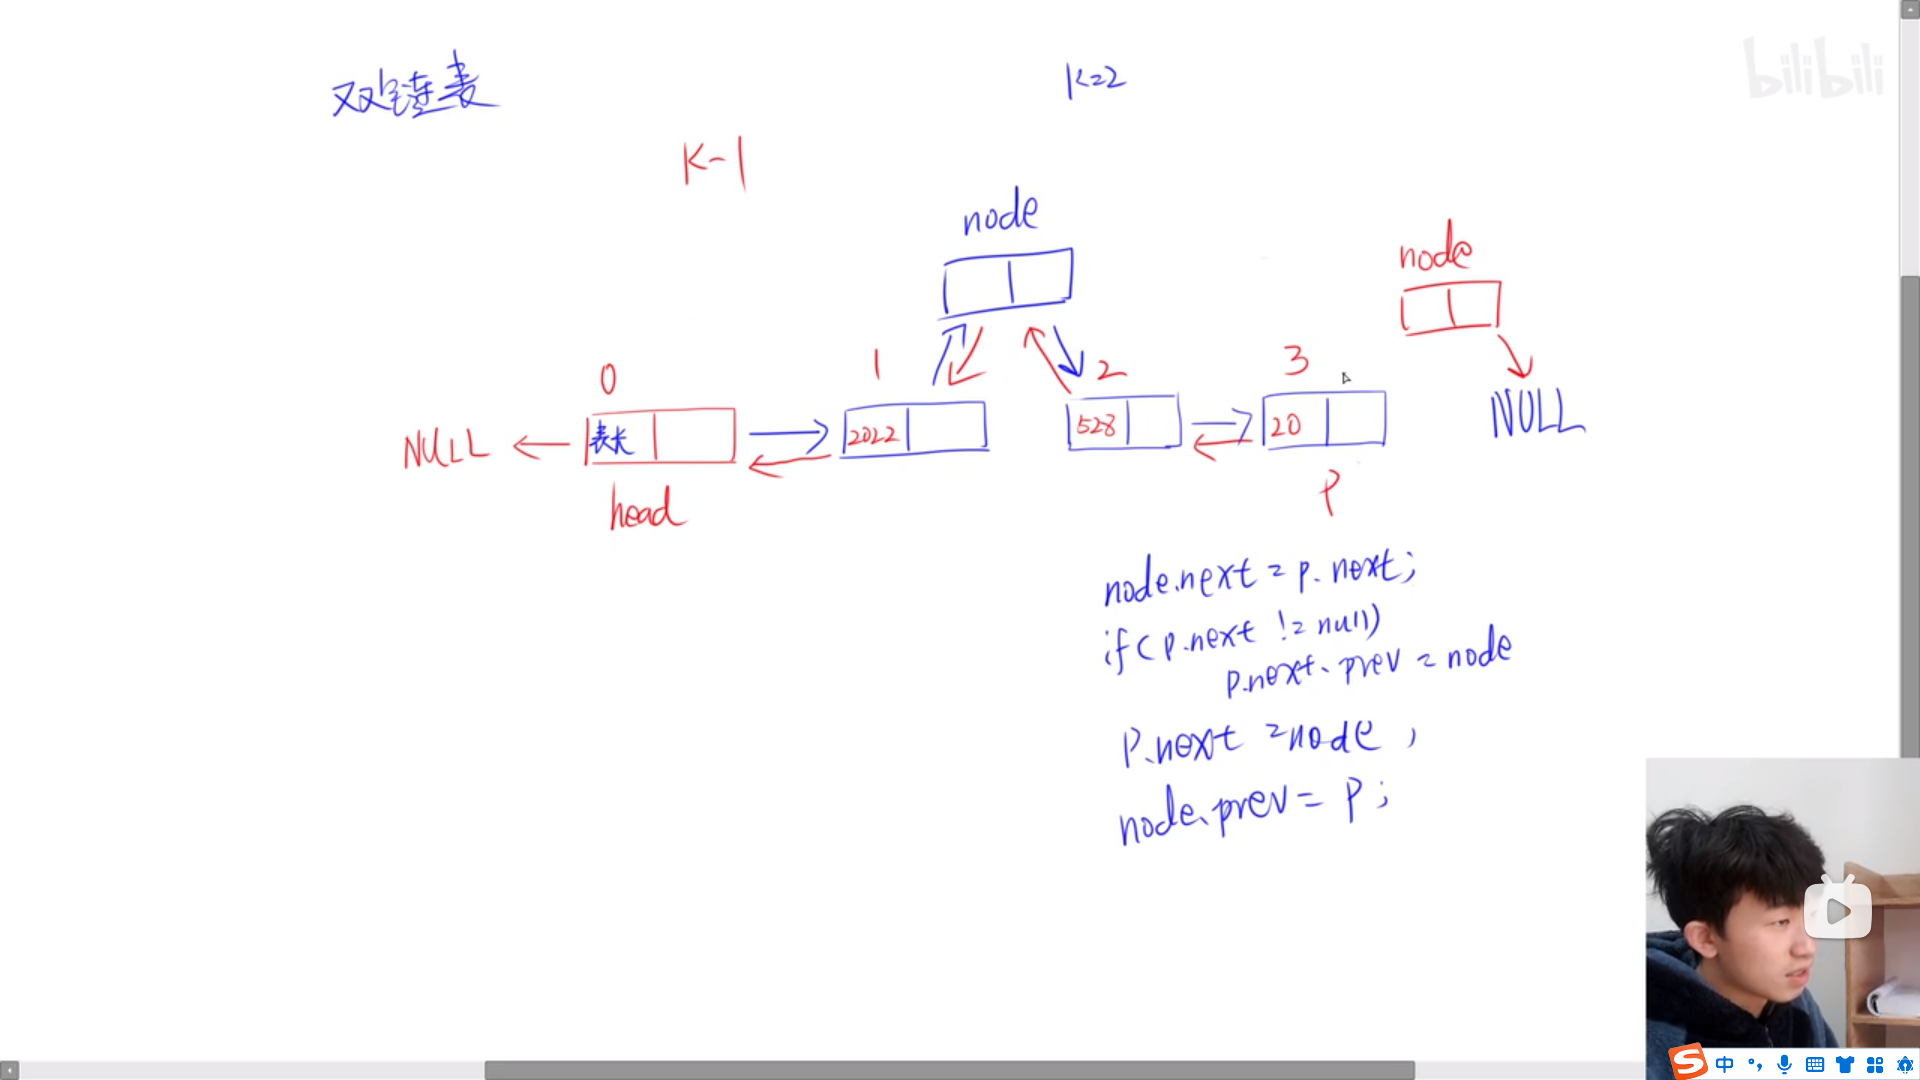 双链表
K=2
bilibili
K-1
node
node
0
1
2
3
NULL
表长
2022
528
20
NULL
head
P
node.next = p.next;
if(p.next != null)
p.next.prev = node
P.next = node ,
node.prev = P;
中